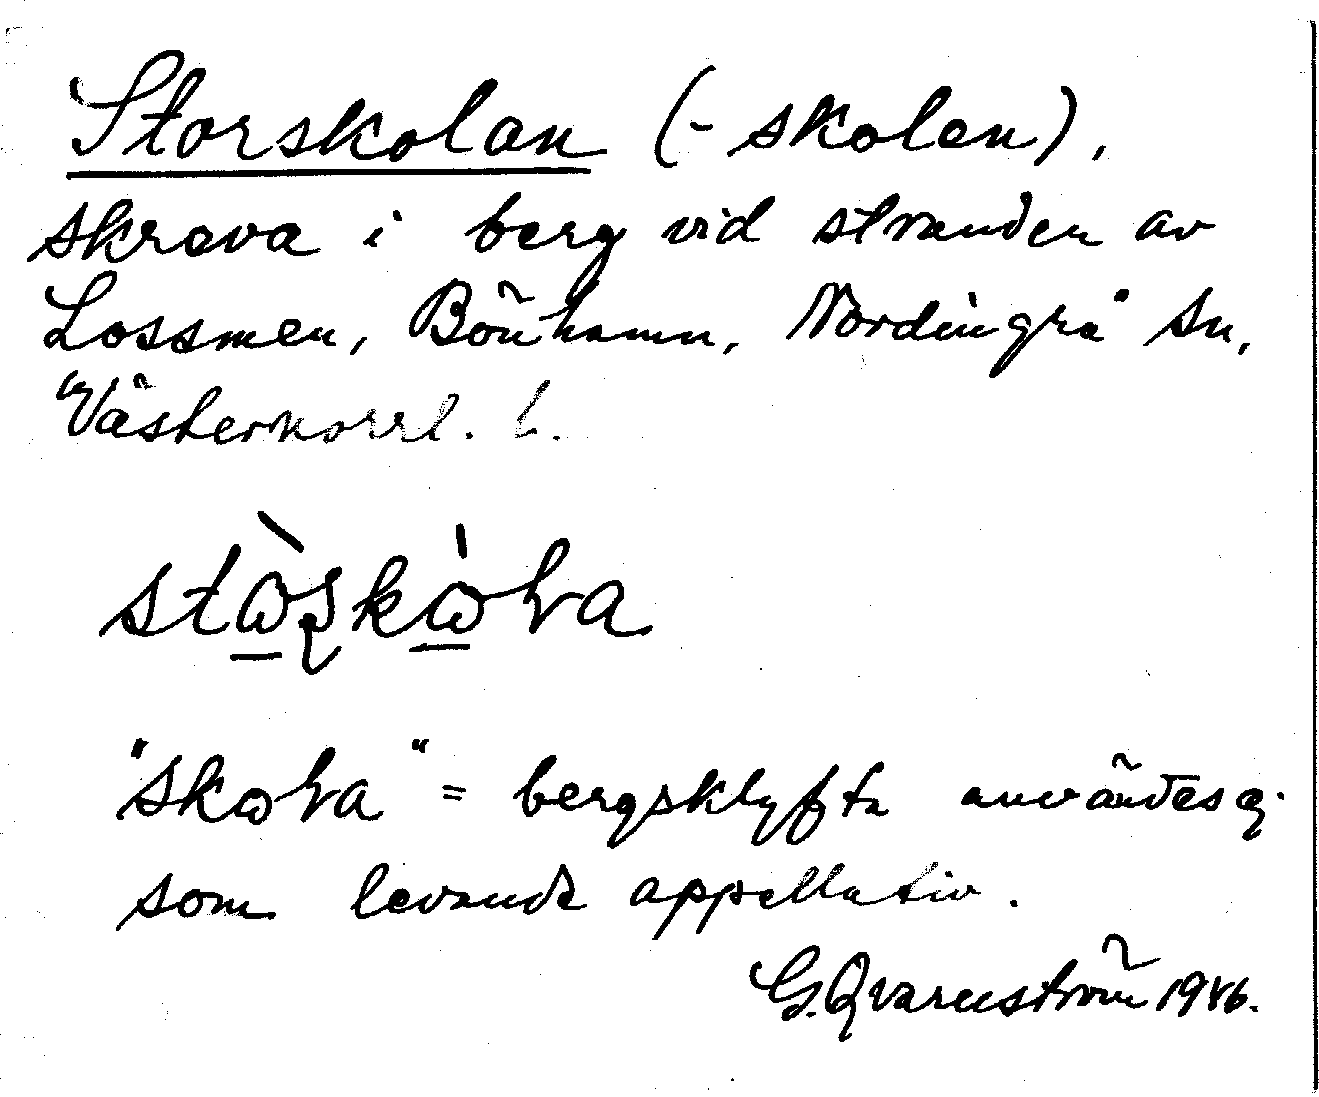 Storskolan (-skolen),
skreva i berg vid stranden av
Lossmen, Bönhamn, Nordingrå sn,
Västernorrl. l.
stὼ̱ʂkω̱̍ɽa
"skωɽa" = bergsklyfta användes ej
som levande appellativ.
G. Qvarnström 1946.